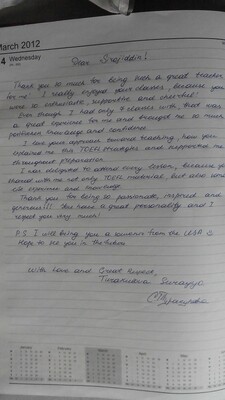 March 2012
4 Wednesday
Dear Sirojiddin!
Thank you so much for being such a great teacher
for me! I really enjoyed your classes, because you
were so enthusiastic, supportive and cheerful!
Even though I had only 4 classes with, that was
a great experience for me and brought me so much
particular knowledge and confidence.
I love your approach towards teaching, how you
explained me this TOEFL strategies and supported me
throughout preparation.
I was delighted to attend every lesson, because you
shared with me not only TOEFL material, but also some
life experience and knowledge.
Thank you for being so passionate, inspired and
generous!!! You have a great personality and I
respect you very much!
P.S. I will bring you a souvenir from the USA
Hope to see you in the future
With Love and Great Respect,